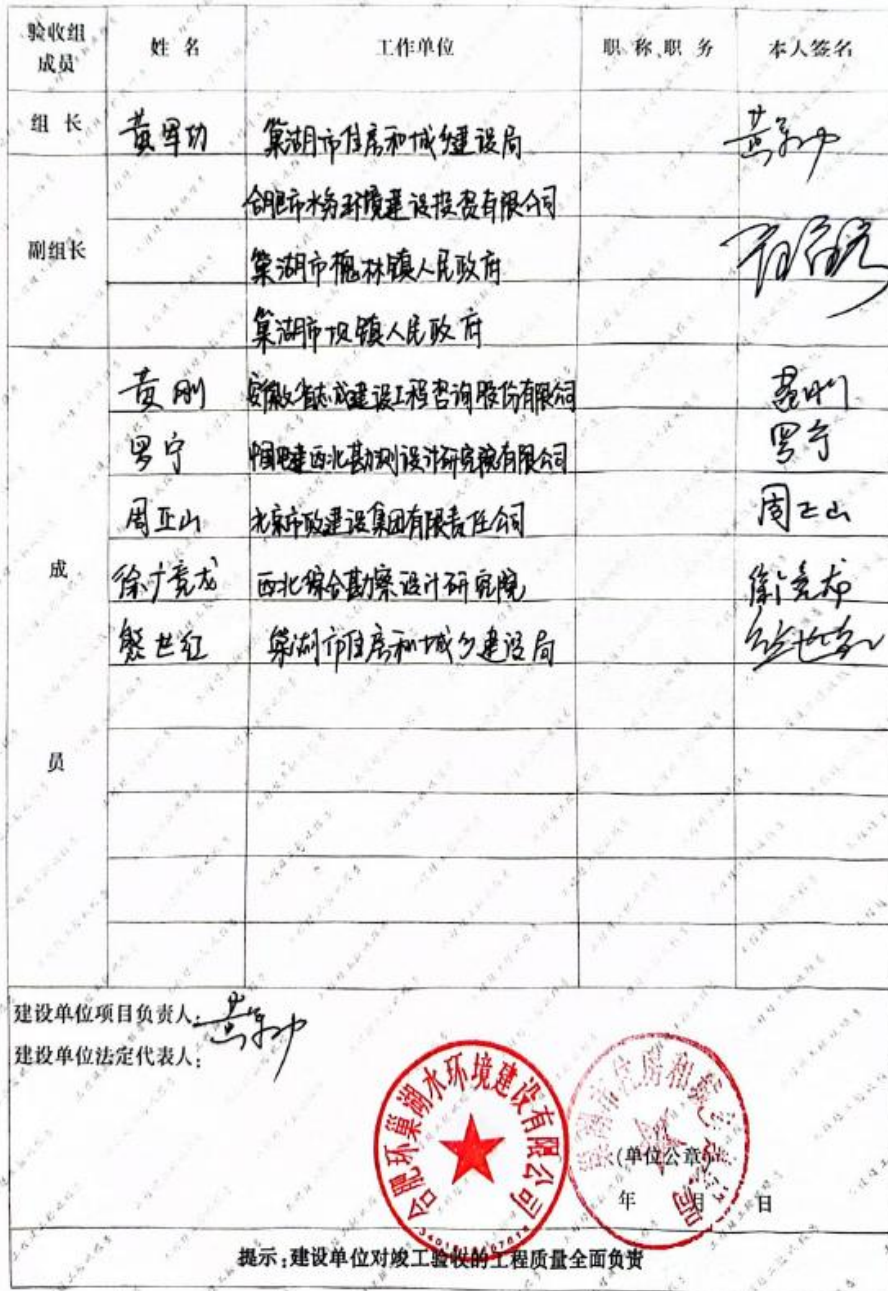 验收组成员 姓 名 工作单位 职 称、职 务 本人签名
组 长 黄军功 巢湖市住房和城乡建设局
副组长 合肥市水务环境建设投资有限公司
巢湖市槐林镇人民政府
巢湖市坝镇人民政府
成 员
黄刚 安徽省志成建设工程咨询股份有限公司 黄刚
罗宁 中国电建西北勘测设计研究院有限公司 罗宁
周正山 北京市政建设集团有限责任公司 周正山
徐广竟龙 西北综合勘察设计研究院
世红 巢湖市住房和城乡建设局
建设单位项目负责人:
建设单位法定代表人:
合肥环巢湖水环境建设有限公司
(单位公章)
年 月 日
提示:建设单位对竣工验收的工程质量全面负责